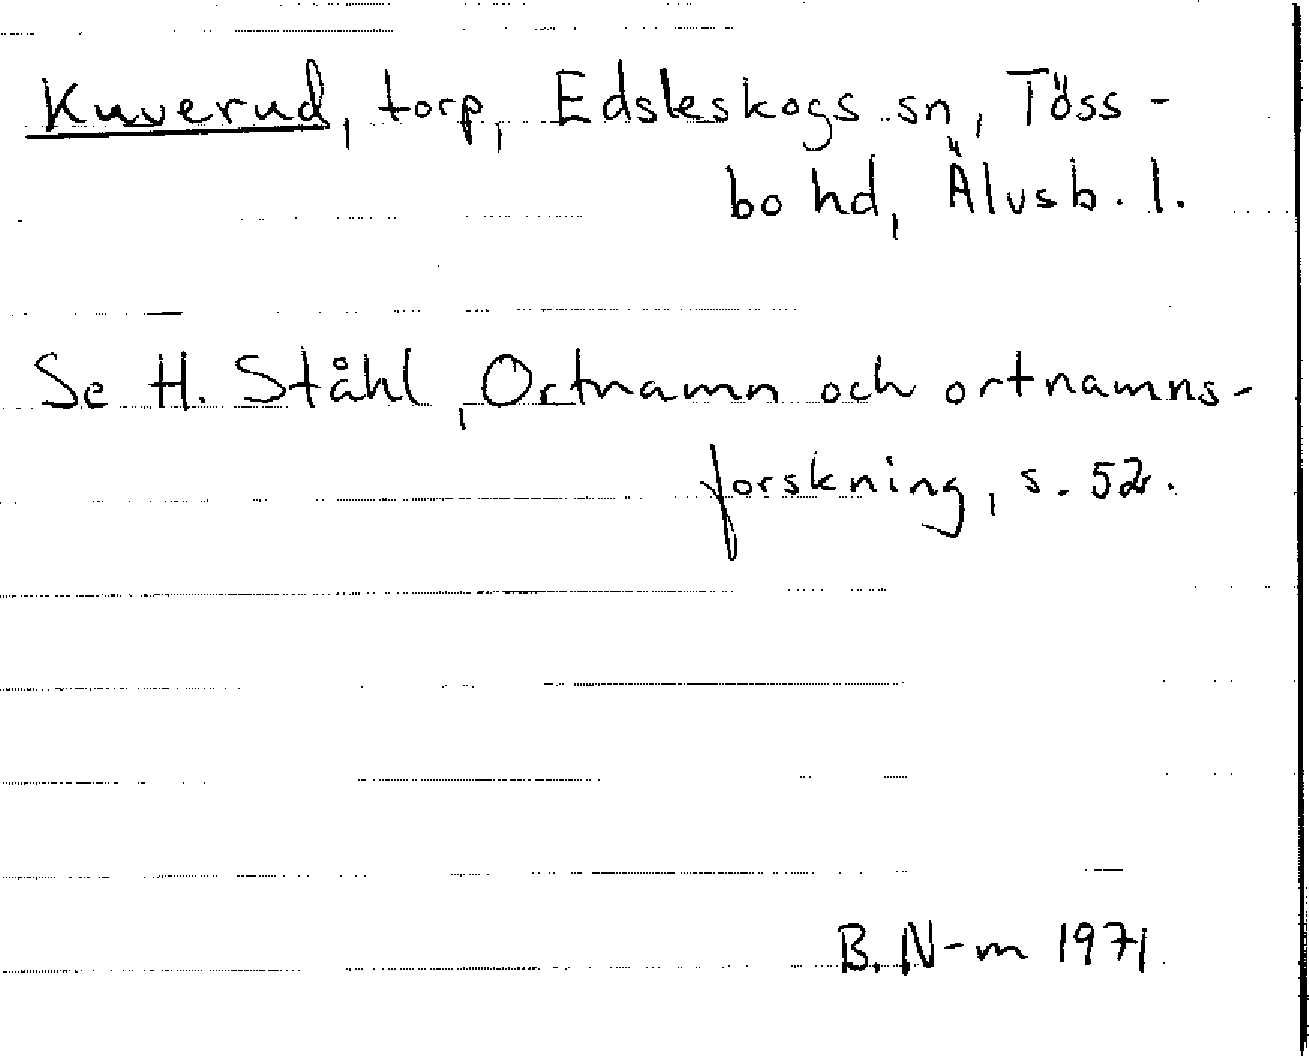 Kuverud, torp, Edsleskogs sn, Töss-
bo hd, Älvsb. l.
Se H. Ståhl, Ortnamn och ortnamns-
forskning, s. 52.
B. N-m 1971